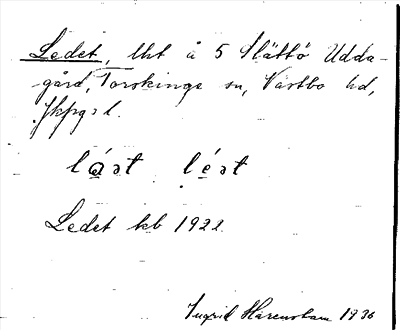 Ledet, lht å 5 Slättö Udda-
gård, Torskinge sn, Västbo hd,
Jkpgs l.
lást lést
Ledet kb 1922.
Ingrid Härenstam 1936